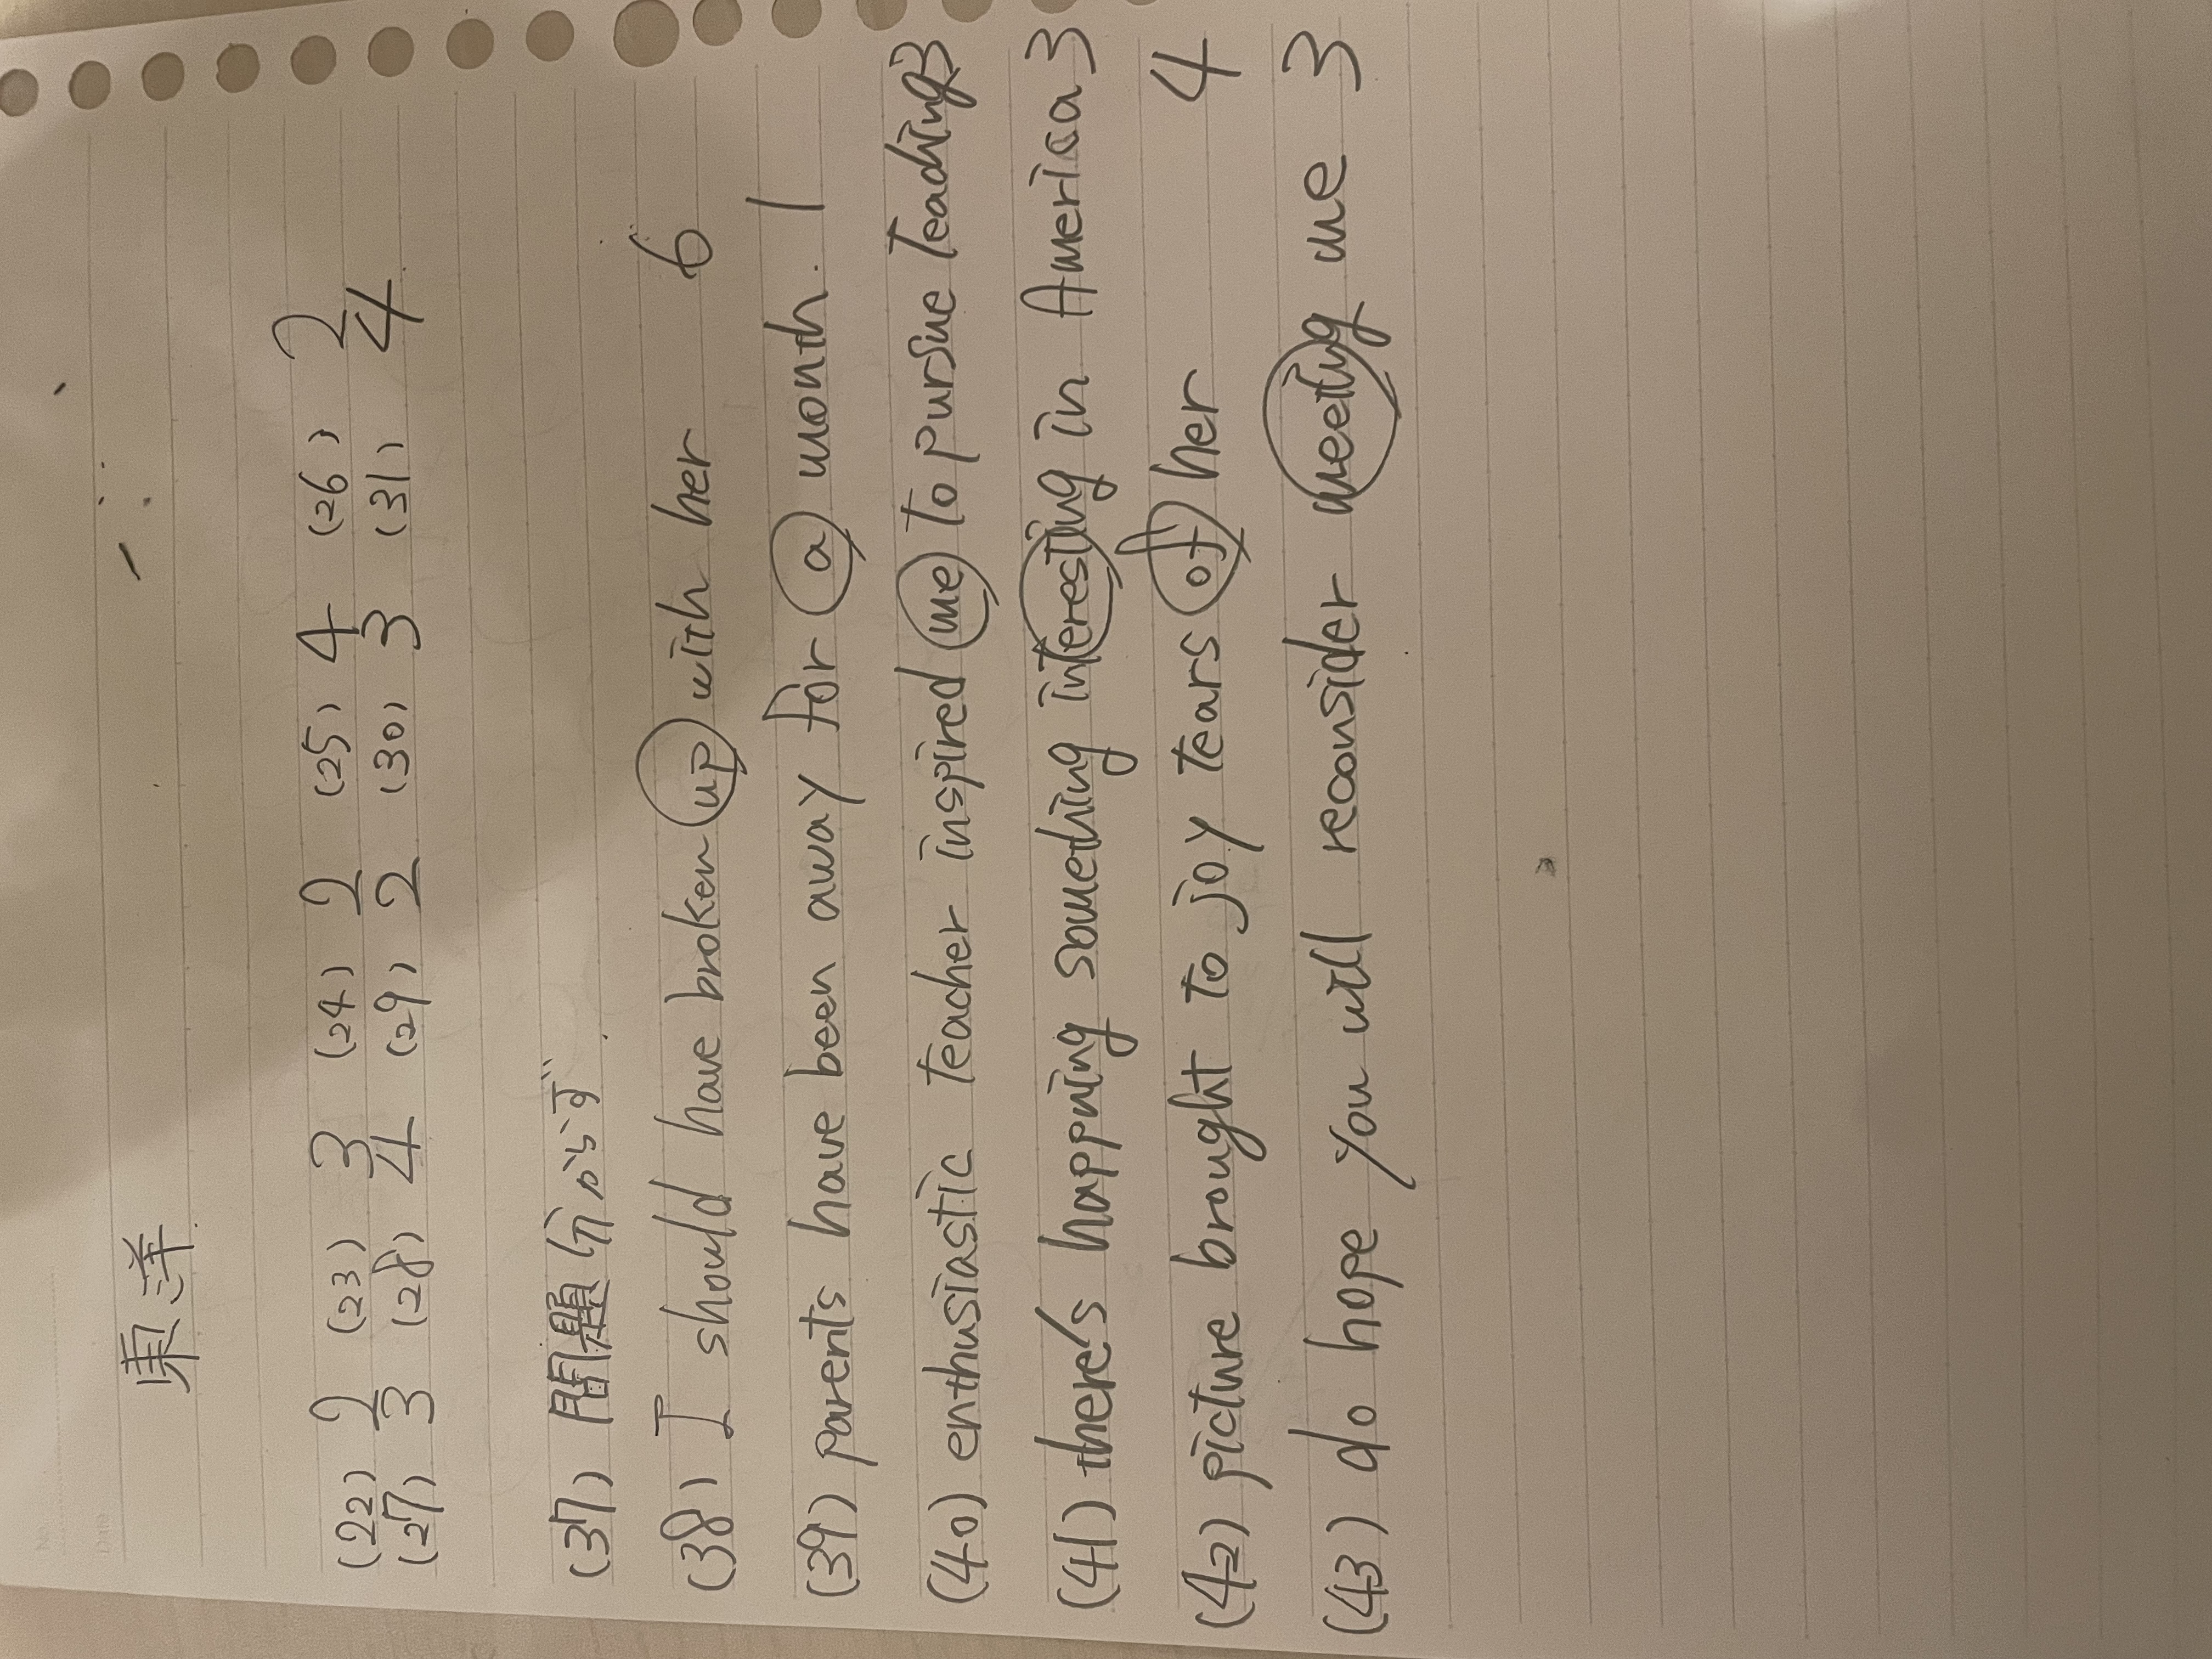 東洋
(22) 2 (23) 3 (24) 2 (25) 4 (26) 2
(27) 3 (28) 4 (29) 2 (30) 3 (31) 4
(37) 問題分からず
(38) I should have broken up with her 6
(39) parents have been away for a month. 1
(40) enthusiastic teacher inspired me to pursue teaching 3
(41) there's happning something interesting in America 3
(42) picture brought to joy tears of her 4
(43) do hope you will reconsider meeting me 3